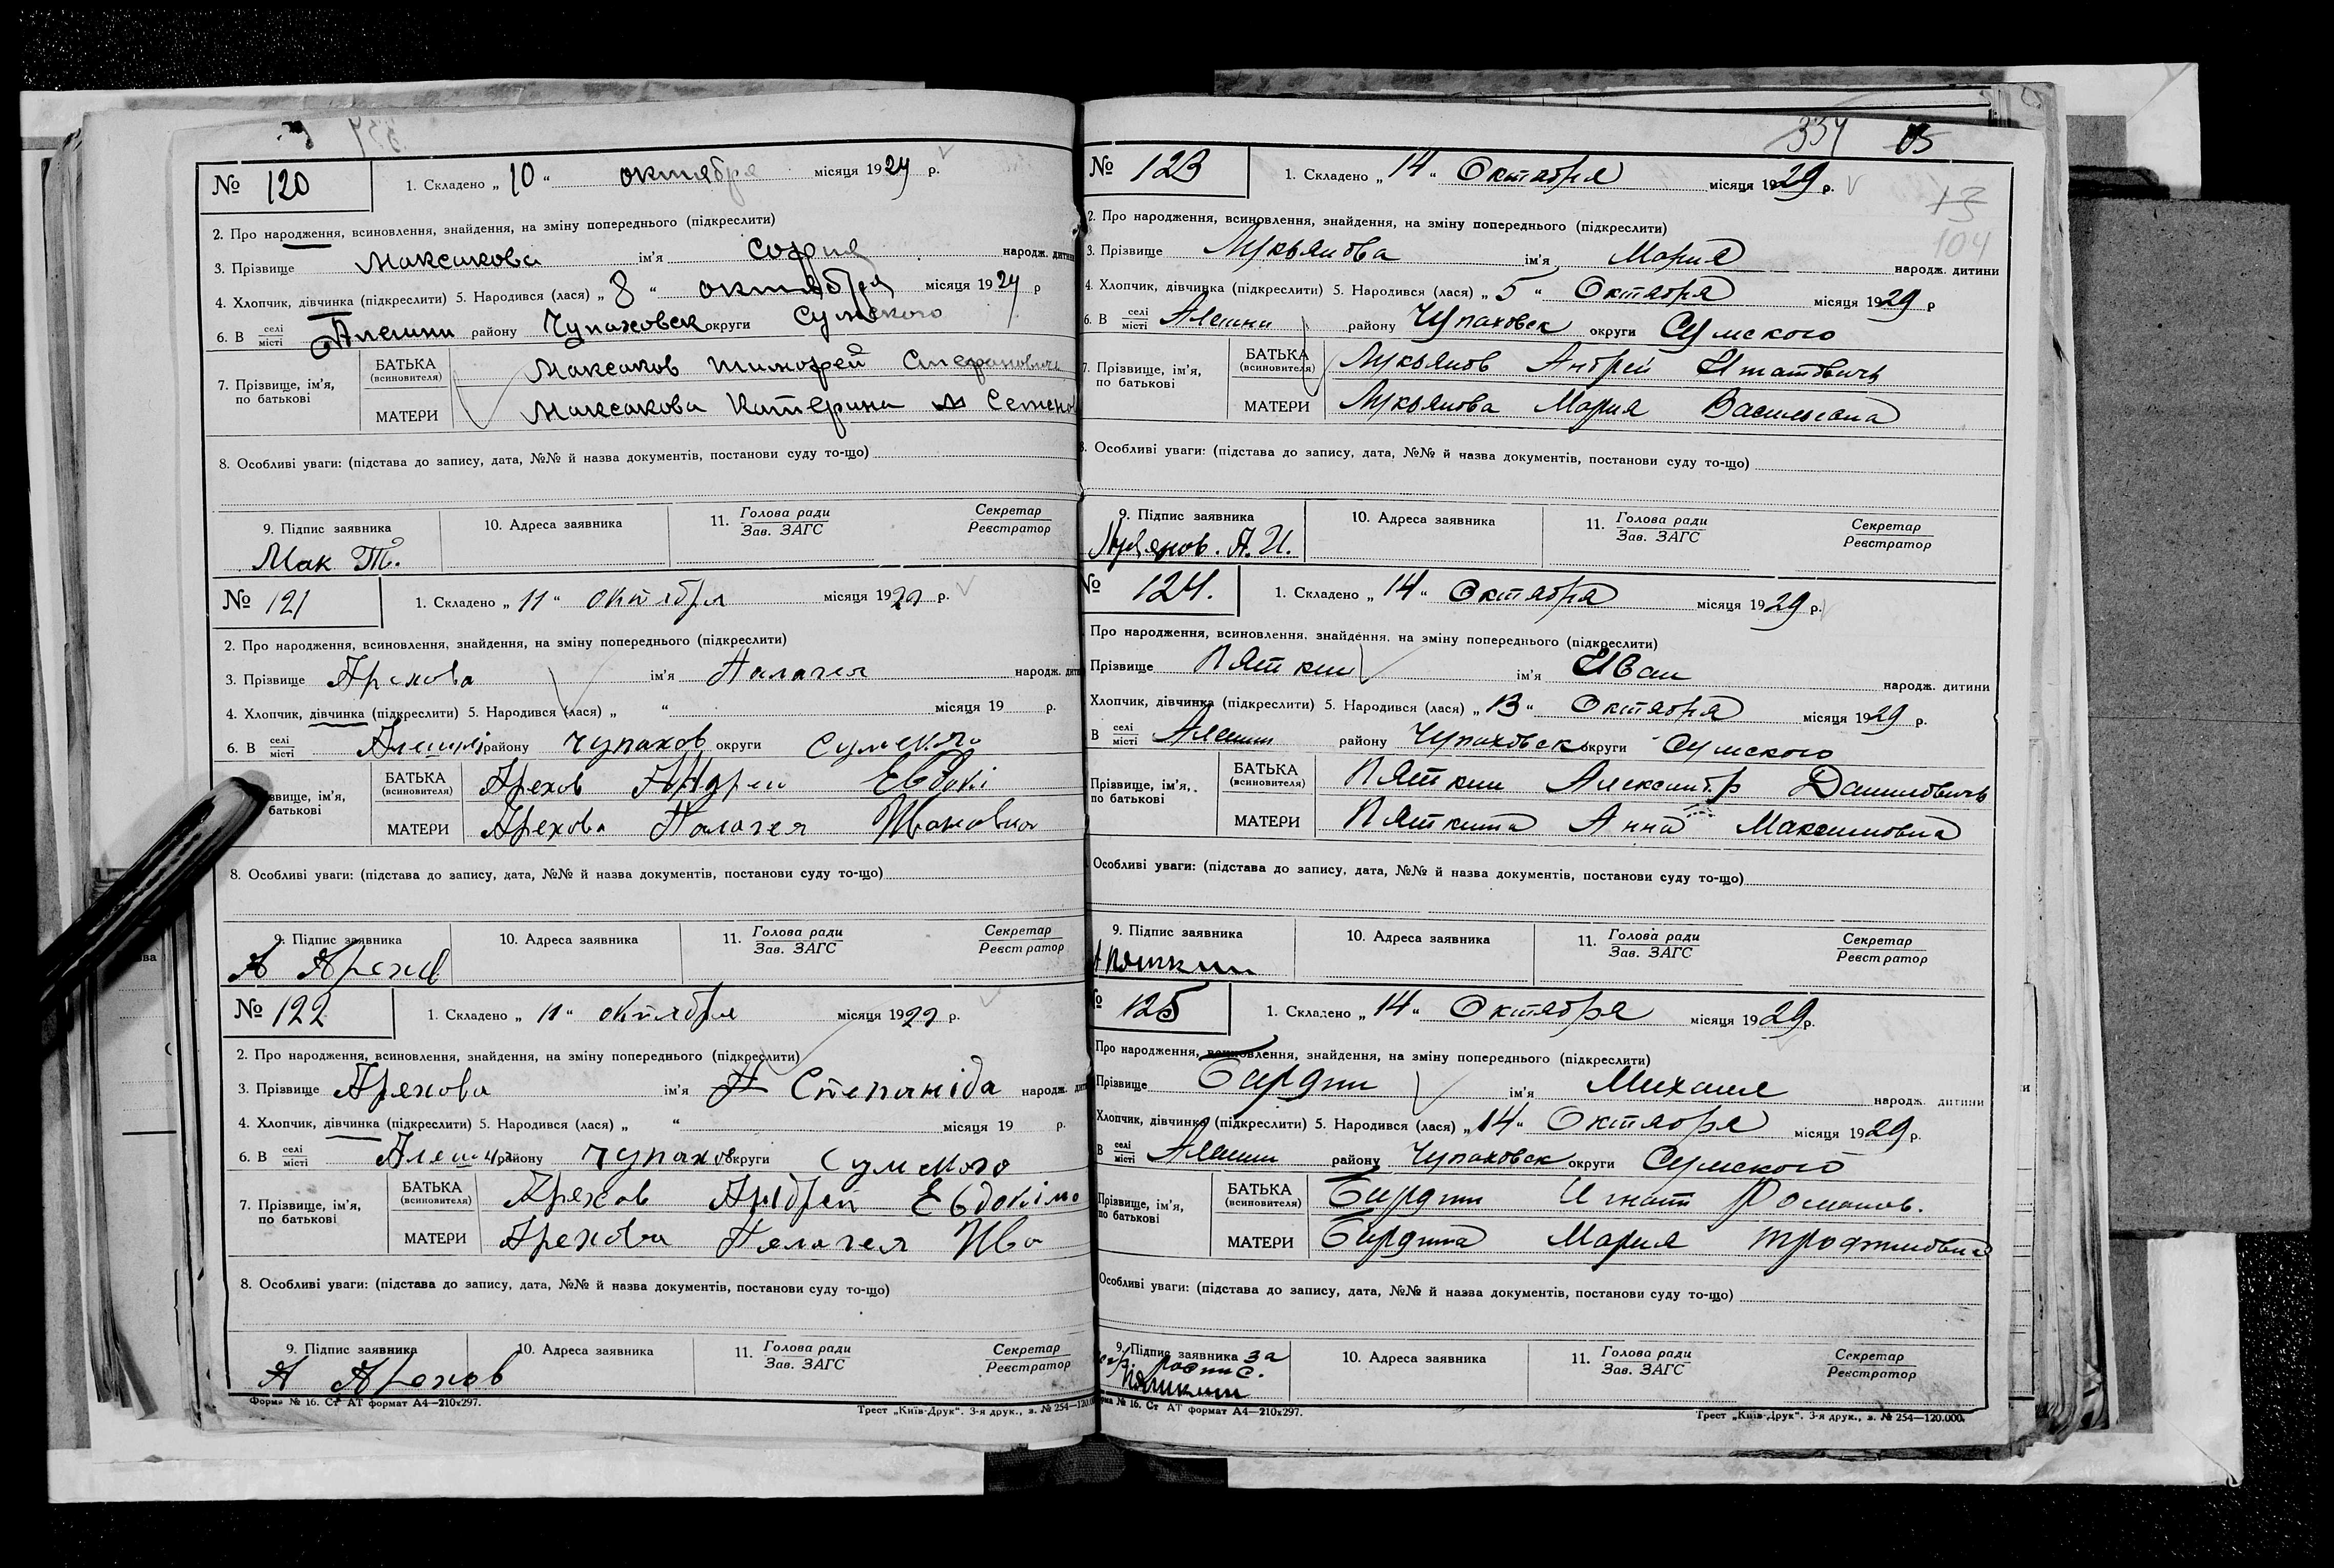 № 120 1. Складено „ 10 “ октября місяця 1929 р.
2. Про народження, всиновлення, знайдення, на зміну попереднього (підкреслити)
3. Прізвище Максакова ім'я София народж. дитини
4. Хлопчик, дівчинка (підкреслити) 5. Народився (лася) „ 8 “ октября місяця 1929 р
6. В селі місті Алешни району Чупаховск округи Сумского
7. Прізвище, ім'я, по батькові
БАТЬКА (всиновителя) Максаков Тимофей Стефанович
МАТЕРИ Максакова Катерина Семено
8. Особливі уваги: (підстава до запису, дата, №№ й назва документів, постанови суду то-що)
9. Підпис заявника 10. Адреса заявника 11. Голова ради Зав. ЗАГС Секретар Реєстратор
Мак Т.
№ 121 1. Складено „ 11 “ октября місяця 1929 р.
2. Про народження, всиновлення, знайдення, на зміну попереднього (підкреслити)
3. Прізвище Арехова ім'я Палагея народж. дити
4. Хлопчик, дівчинка (підкреслити) 5. Народився (лася) „ “ місяця 19 р.
6. В селі місті Алешня району чупахов округи Сумского
звище, ім'я, батькові
БАТЬКА (всиновителя) Арехов Андреи Евдокі
МАТЕРИ Арехова Палагея Ивановна
8. Особливі уваги: (підстава до запису, дата, №№ й назва документів, постанови суду то-що)
9. Підпис заявника 10. Адреса заявника 11. Голова ради Зав. ЗАГС Секретар Реєстратор
А Арехов
№ 122 1. Складено „ 11 “ октября місяця 1929 р.
2. Про народження, всиновлення, знайдення, на зміну попереднього (підкреслити)
3. Прізвище Арехова ім'я Степаніда народж. дит
4. Хлопчик, дівчинка (підкреслити) 5. Народився (лася) „ “ місяця 19 р.
6. В селі місті Алешня району чупахов округи Сумского
7. Прізвище, ім'я, по батькові
БАТЬКА (всиновителя) Арехов Андрей Евдокімо
МАТЕРИ Арехова Палагея Ива
8. Особливі уваги: (підстава до запису, дата, №№ й назва документів, постанови суду то-що)
9. Підпис заявника 10. Адреса заявника 11. Голова ради Зав. ЗАГС Секретар Реєстратор
А Арехов
Форма № 16. Ст АТ формат А4—210х297. Трест „Київ-Друк“. 3-я друк., з. № 254—120.0
334
104
№ 123 1. Складено „ 14 “ Октября місяця 1929 р.
2. Про народження, всиновлення, знайдення, на зміну попереднього (підкреслити)
3. Прізвище Лукьянова ім'я Мария народж. дитини
4. Хлопчик, дівчинка (підкреслити) 5. Народився (лася) „ 5 “ Октября місяця 1929 р
6. В селі місті Алешни району Чупаховск округи Сумского
7. Прізвище, ім'я, по батькові
БАТЬКА (всиновителя) Лукьянов Андрей Игнатович
МАТЕРИ Лукьянова Мария Васильевна
8. Особливі уваги: (підстава до запису, дата, №№ й назва документів, постанови суду то-що)
9. Підпис заявника 10. Адреса заявника 11. Голова ради Зав. ЗАГС Секретар Реєстратор
А. И.
№ 124. 1. Складено „ 14 “ Октября місяця 1929 р.
Про народження, всиновлення, знайдення, на зміну попереднього (підкреслити)
Прізвище Пяткин ім'я Иван народж. дитини
Хлопчик, дівчинка (підкреслити) 5. Народився (лася) „ 13 “ Октября місяця 1929 р.
В селі місті Алешни району Чупаховск округи Сумского
Прізвище, ім'я, по батькові
БАТЬКА (всиновителя) Пяткин Александр Данилович
МАТЕРИ Пяткина Анна Максимовна
Особливі уваги: (підстава до запису, дата, №№ й назва документів, постанови суду то-що)
9. Підпис заявника 10. Адреса заявника 11. Голова ради Зав. ЗАГС Секретар Реєстратор
Пяткин
№ 125 1. Складено „ 14 “ Октября місяця 1929 р.
Про народження, всиновлення, знайдення, на зміну попереднього (підкреслити)
Прізвище Бардин ім'я Михаил народж. дитини
Хлопчик, дівчинка (підкреслити) 5. Народився (лася) „ 14 “ Октября місяця 1929 р.
В селі місті Алешни району Чупаховск округи Сумского
Прізвище, ім'я, по батькові
БАТЬКА (всиновителя) Бардин Игнат Романов.
МАТЕРИ Бардина Мария Трофимовна
Особливі уваги: (підстава до запису, дата, №№ й назва документів, постанови суду то-що)
9. Підпис заявника за 10. Адреса заявника 11. Голова ради Зав. ЗАГС Секретар Реєстратор
Пяткин
рма № 16. Ст АТ формат А4—210х297. Трест „Київ-Друк“. 3-я друк., з. № 254—120.000.